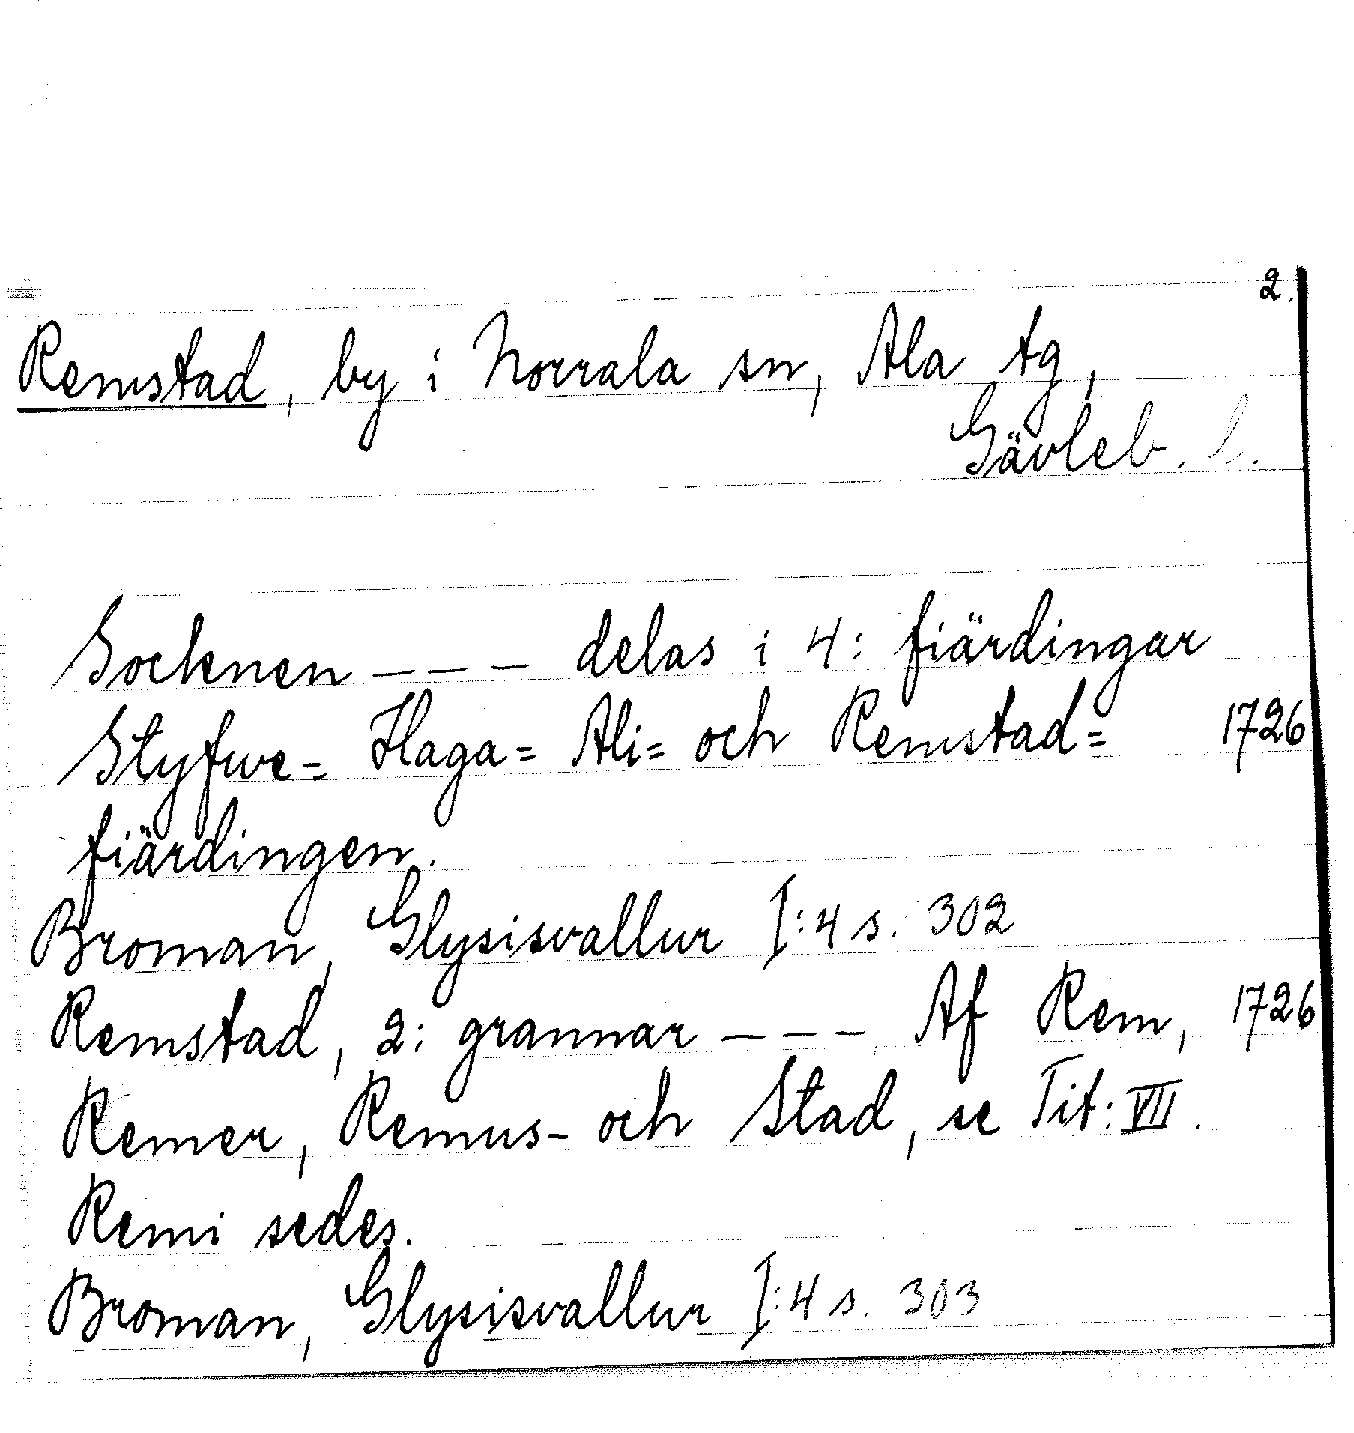 2.
Remstad, by i Norrala sn, Ala tg,
Gävleb. l.
Socknen --- delas i 4: fiärdingar
Styfwe= Haga= Ali= och Remstad= 1726
fiärdingen.
Broman, Glysisvallur I:4 s. 302
Remstad, 2: grannar --- Af Rem, 1726
Remer, Remus- och Stad, se Tit: VII.
Remi sedes.
Broman, Glysisvallur I:4 s. 303